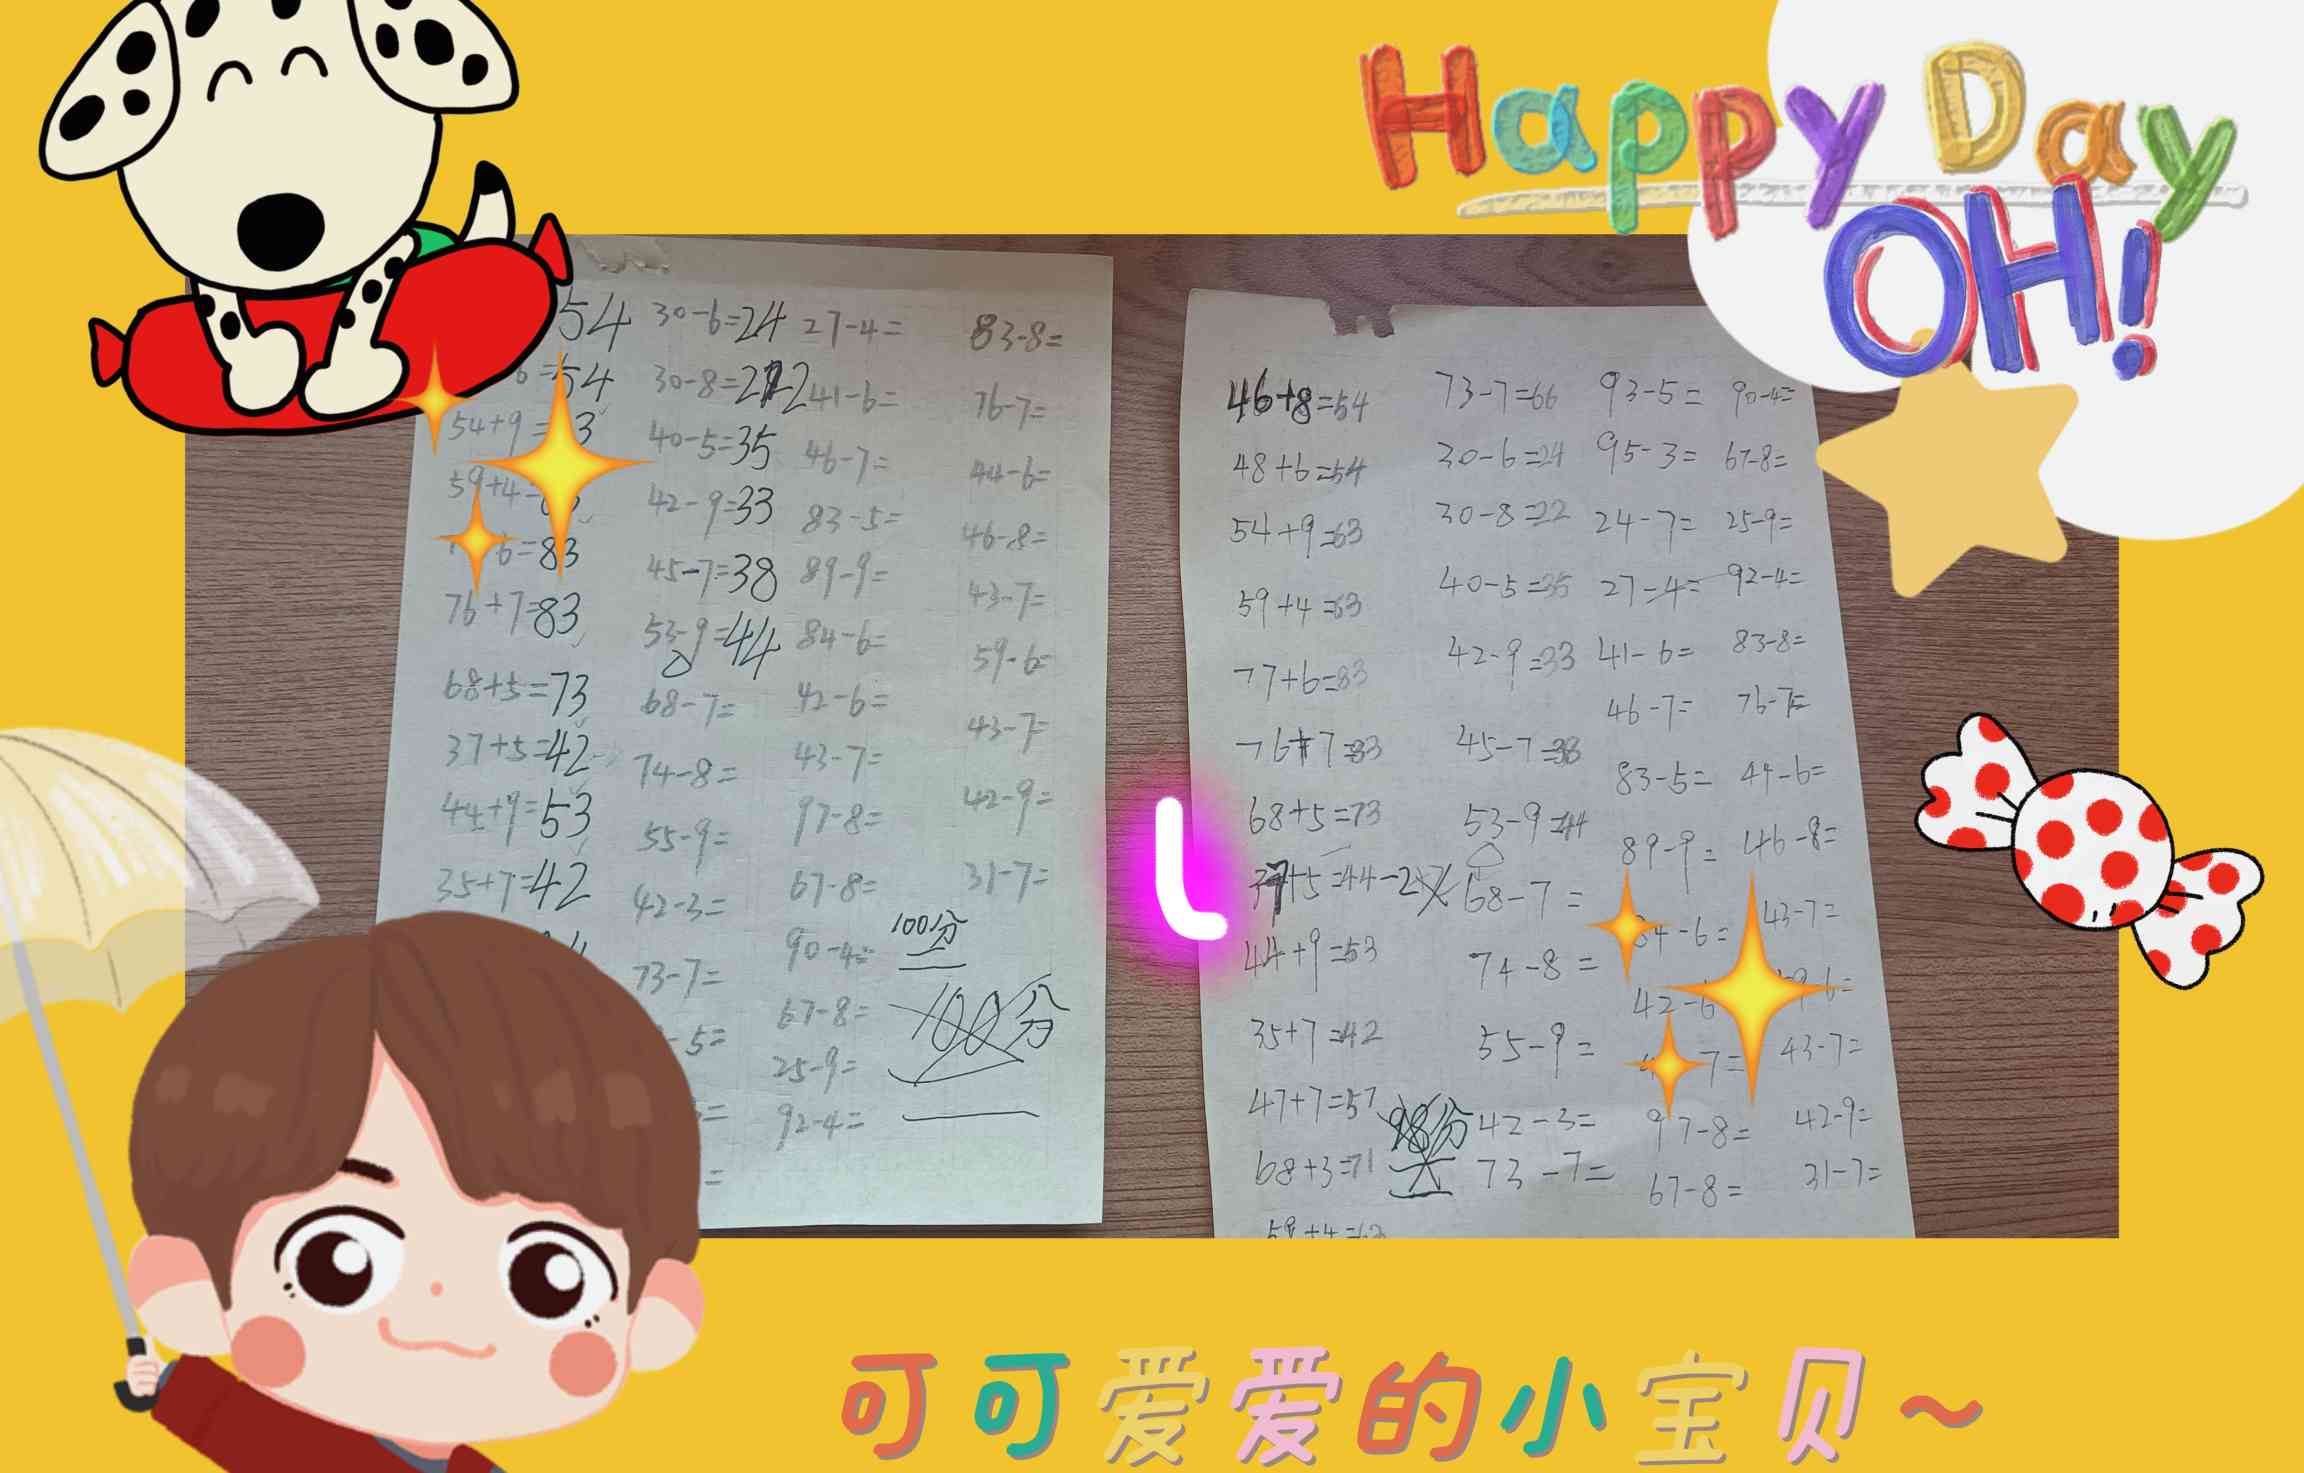 Happy Day
OH!
54 30-6=24 27-4= 83-8=
6=54 30-8=22 41-6= 76-7=
54+9=3 40-5=35 46-7= 44-6=
59+4= 42-9=33 83-5= 46-8=
6=83 45-7=38 89-9= 43-7=
76+7=83 53-9=44 84-6= 59-6=
68+5=73 68-7= 42-6= 43-7=
37+5=42 74-8= 43-7= 42-9=
44+9=53 55-9= 97-8= 31-7=
35+7=42 42-3= 67-8=
100分
73-7= 90-4=
-5= 67-8= 100分
25-9=
92-4=
46+8=54 73-7=66 93-5= 90-4=
48+6=54 30-6=24 95-3= 67-8=
54+9=63 30-8=22 24-7= 25-9=
59+4=63 40-5=35 27-4= 92-4=
77+6=83 42-9=33 41-6= 83-8=
76+7=83 45-7=38 46-7= 76-7=
68+5=73 53-9=44 83-5= 44-6=
37+5=44-2 68-7= 89-9= 46-8=
44+9=53 74-8= 84-6= 43-7=
35+7=42 55-9= 42-6
47+7=57 98分 42-3= 7= 43-7=
68+3=71 73-7= 97-8= 42-9=
67-8= 31-7=
可可爱爱的小宝贝~